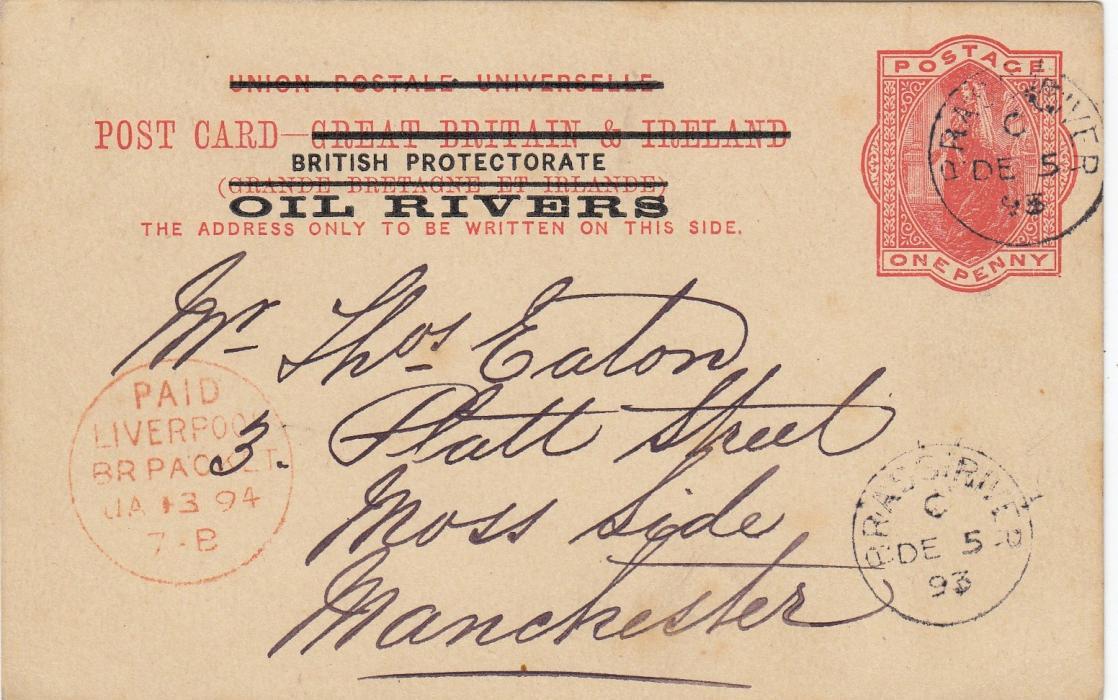 UNION POSTALE UNIVERSELLE
POST CARD—GREAT BRITAIN & IRELAND
BRITISH PROTECTORATE
(GRANDE BRETAGNE ET IRLANDE)
OIL RIVERS
THE ADDRESS ONLY TO BE WRITTEN ON THIS SIDE.
POSTAGE
ONE PENNY
BRASS RIVER
C
DE 5
93
Mr Thos Eaton
3. Platt Street
Moss Side
Manchester
PAID
LIVERPOOL
BR PACKET
JA 13 94
7-B
BRASS RIVER
C
DE 5
93